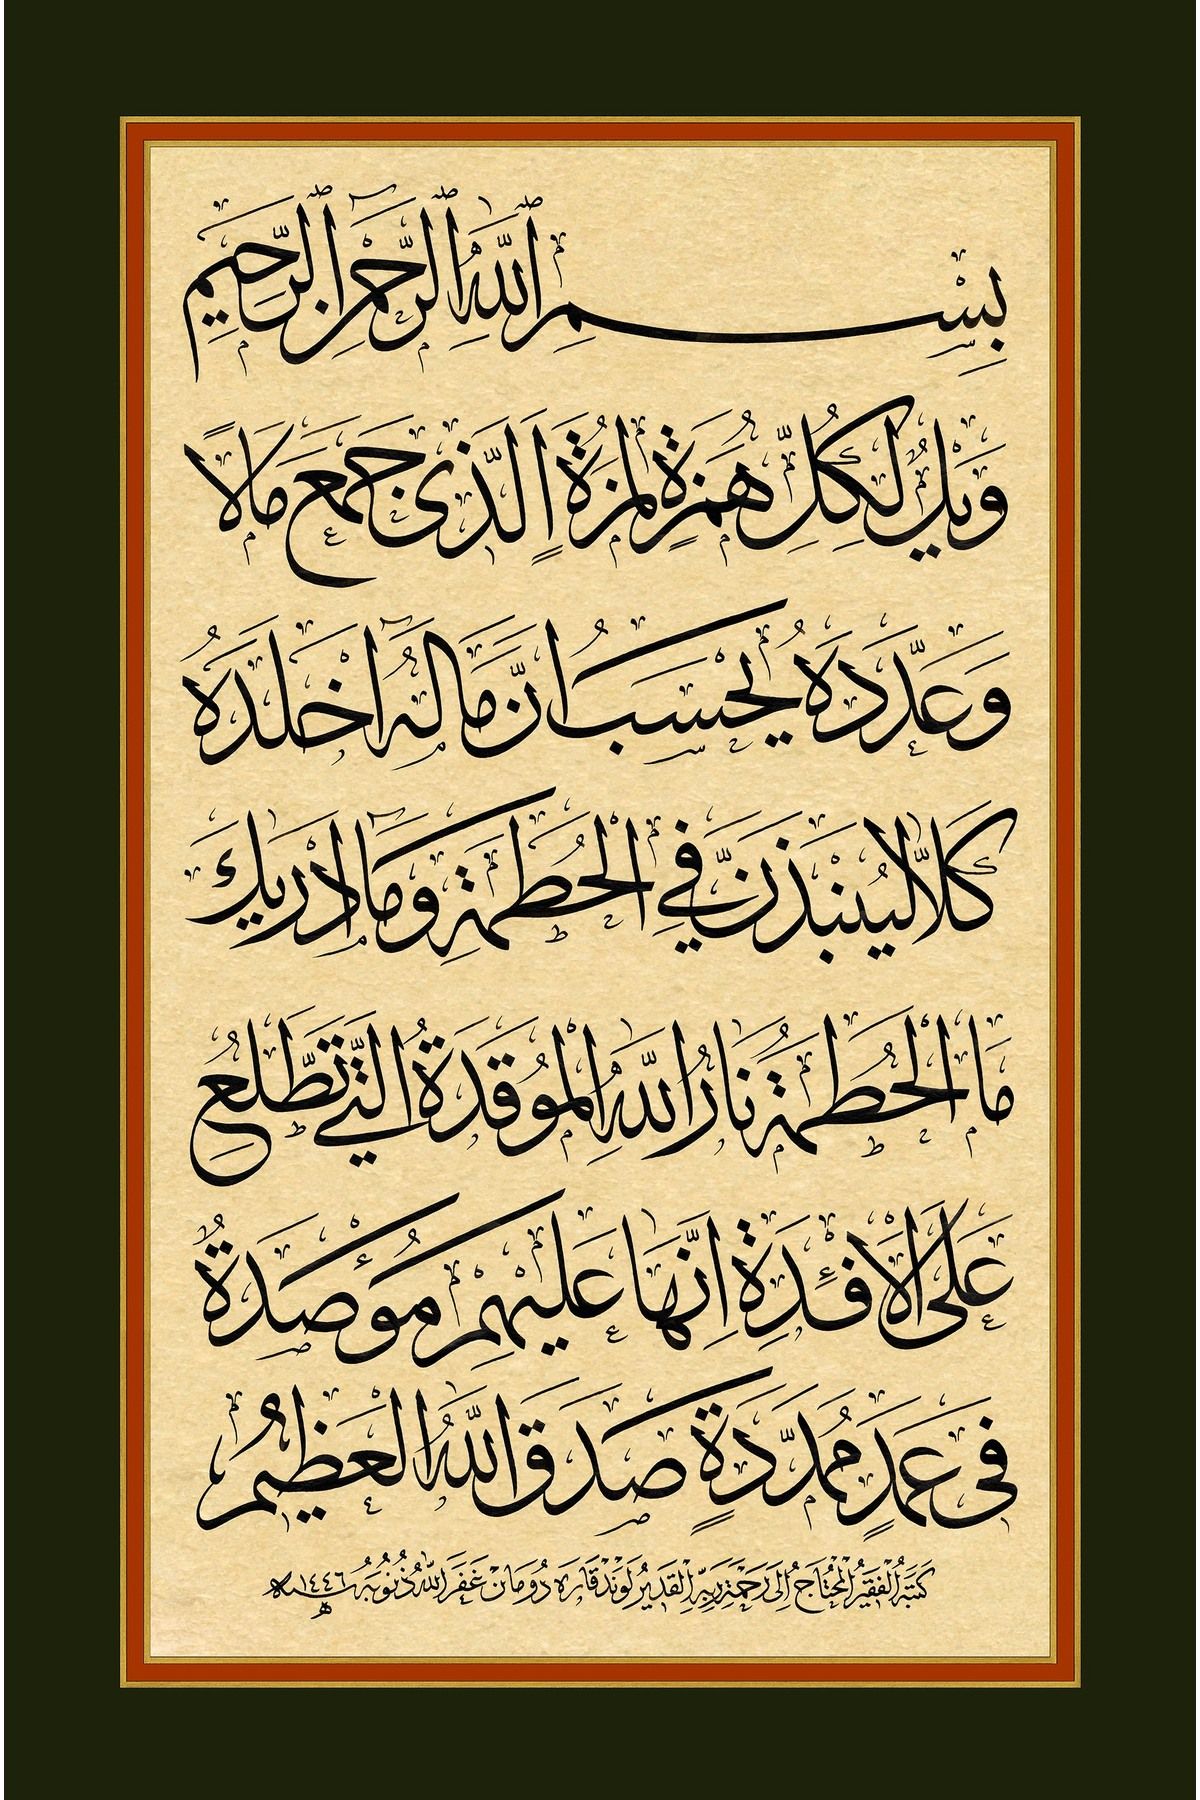 بِسْمِ اللّٰهِ الرَّحْمٰنِ الرَّحِيمِ
وَيْلٌ لِكُلِّ هُمَزَةٍ لُمَزَةٍ اَلَّذِى جَمَعَ مَالًا
وَعَدَّدَهُ يَحْسَبُ اَنَّ مَالَهُ اَخْلَدَهُ
كَلَّا لَيُنْبَذَنَّ فِي الْحُطَمَةِ وَمَا اَدْرٰيكَ
مَا الْحُطَمَةُ نَارُ اللّٰهِ الْمُوقَدَةُ الَّتِي تَطَّلِعُ
عَلَى الْاَفْئِدَةِ اِنَّهَا عَلَيْهِمْ مُؤْصَدَةٌ
فِى عَمَدٍ مُمَدَّدَةٍ صَدَقَ اللّٰهُ الْعَظِيمُ
كَتَبَهُ الْفَقِيرُ الْمُحْتَاجُ اِلَى رَحْمَةِ رَبِّهِ الْقَدِيرِ لَوَنْدْ قَارَه دُومَانْ غَفَرَ اللّٰهُ ذُنُوبَهُ سنة ١٤٤٦ ه